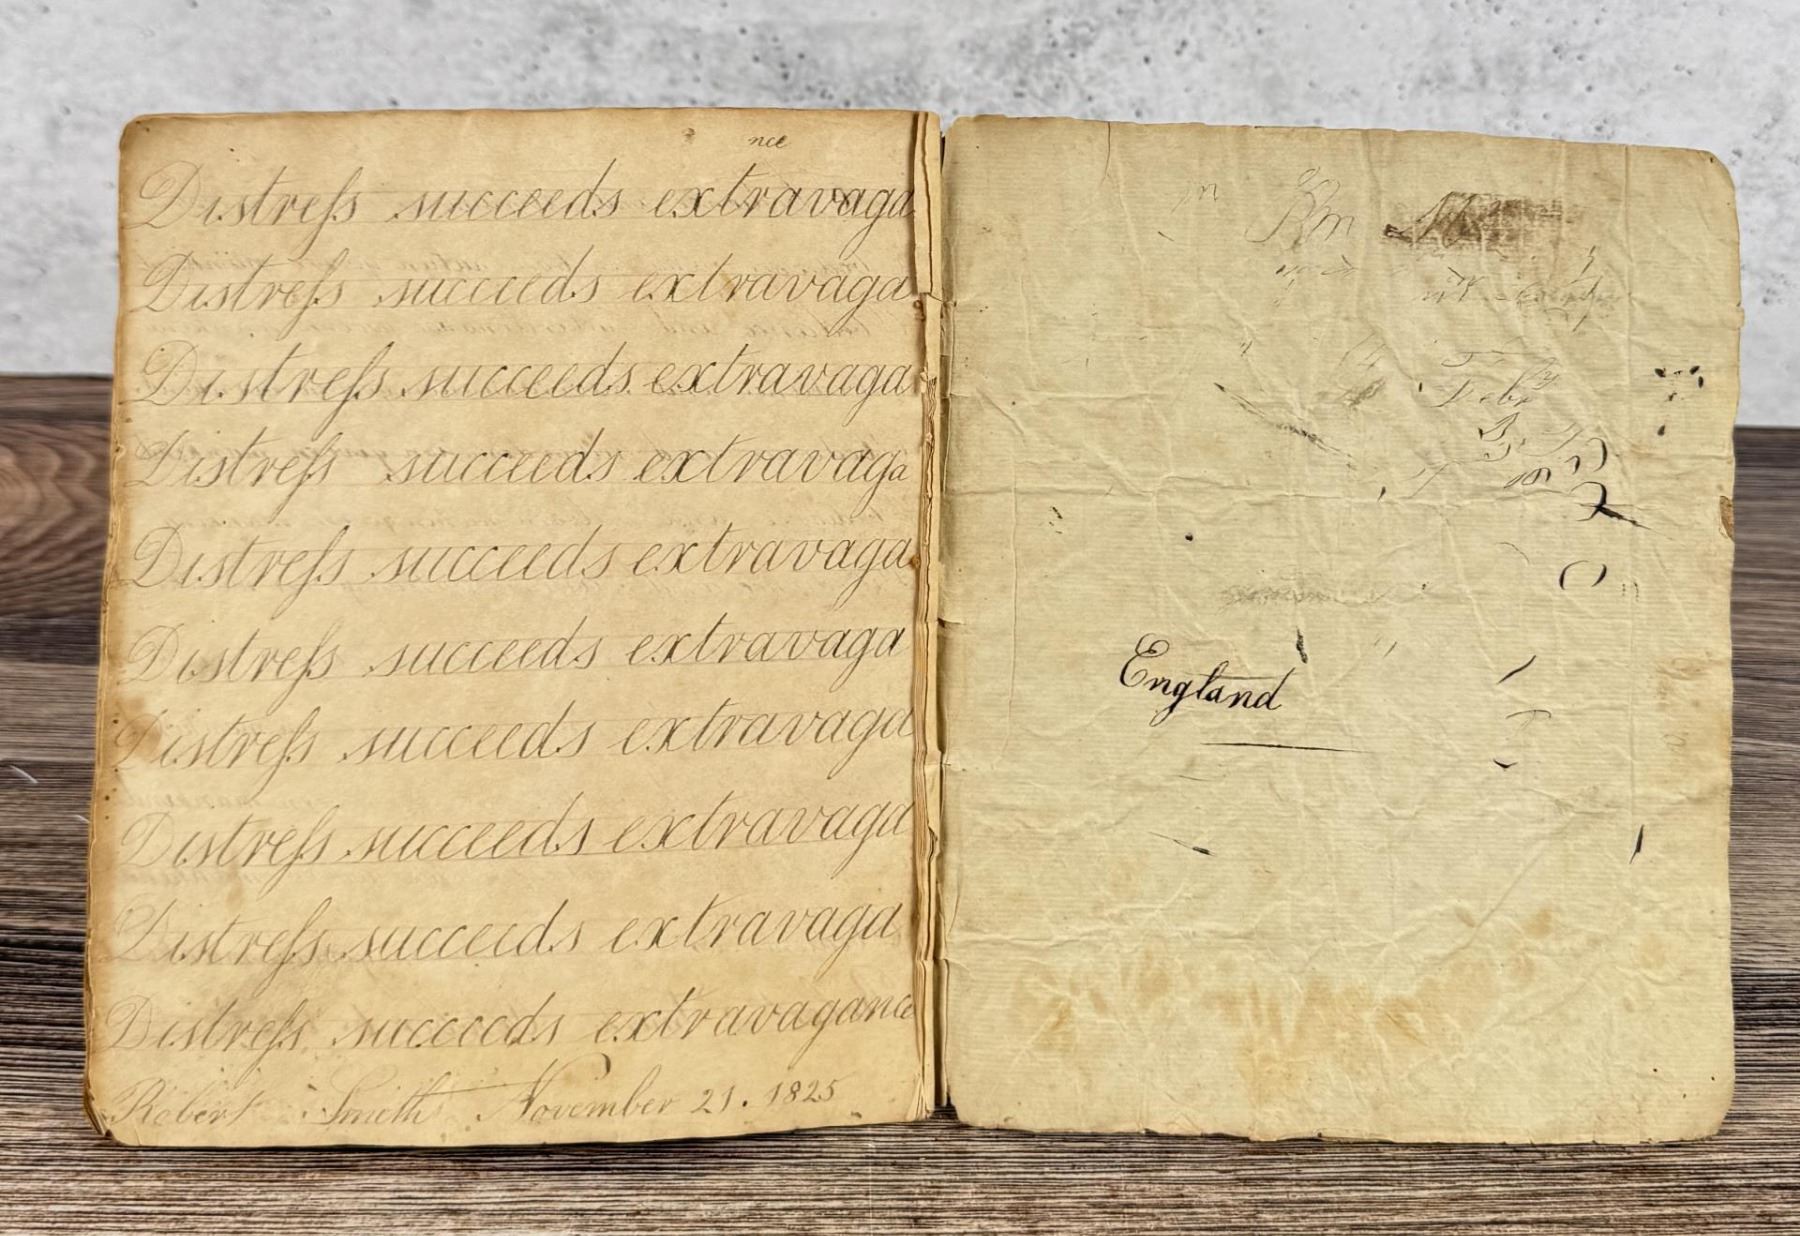 nce
Distreſs succeeds extravaga
Distreſs succeeds extravaga
Distreſs succeeds extravaga
Distreſs succeeds extravaga
Distreſs succeeds extravaga
Distreſs succeeds extravaga
Distreſs succeeds extravaga
Distreſs succeeds extravaga
Distreſs succeeds extravaga
Distreſs succeeds extravagance
Robert Smith November 21. 1825
England